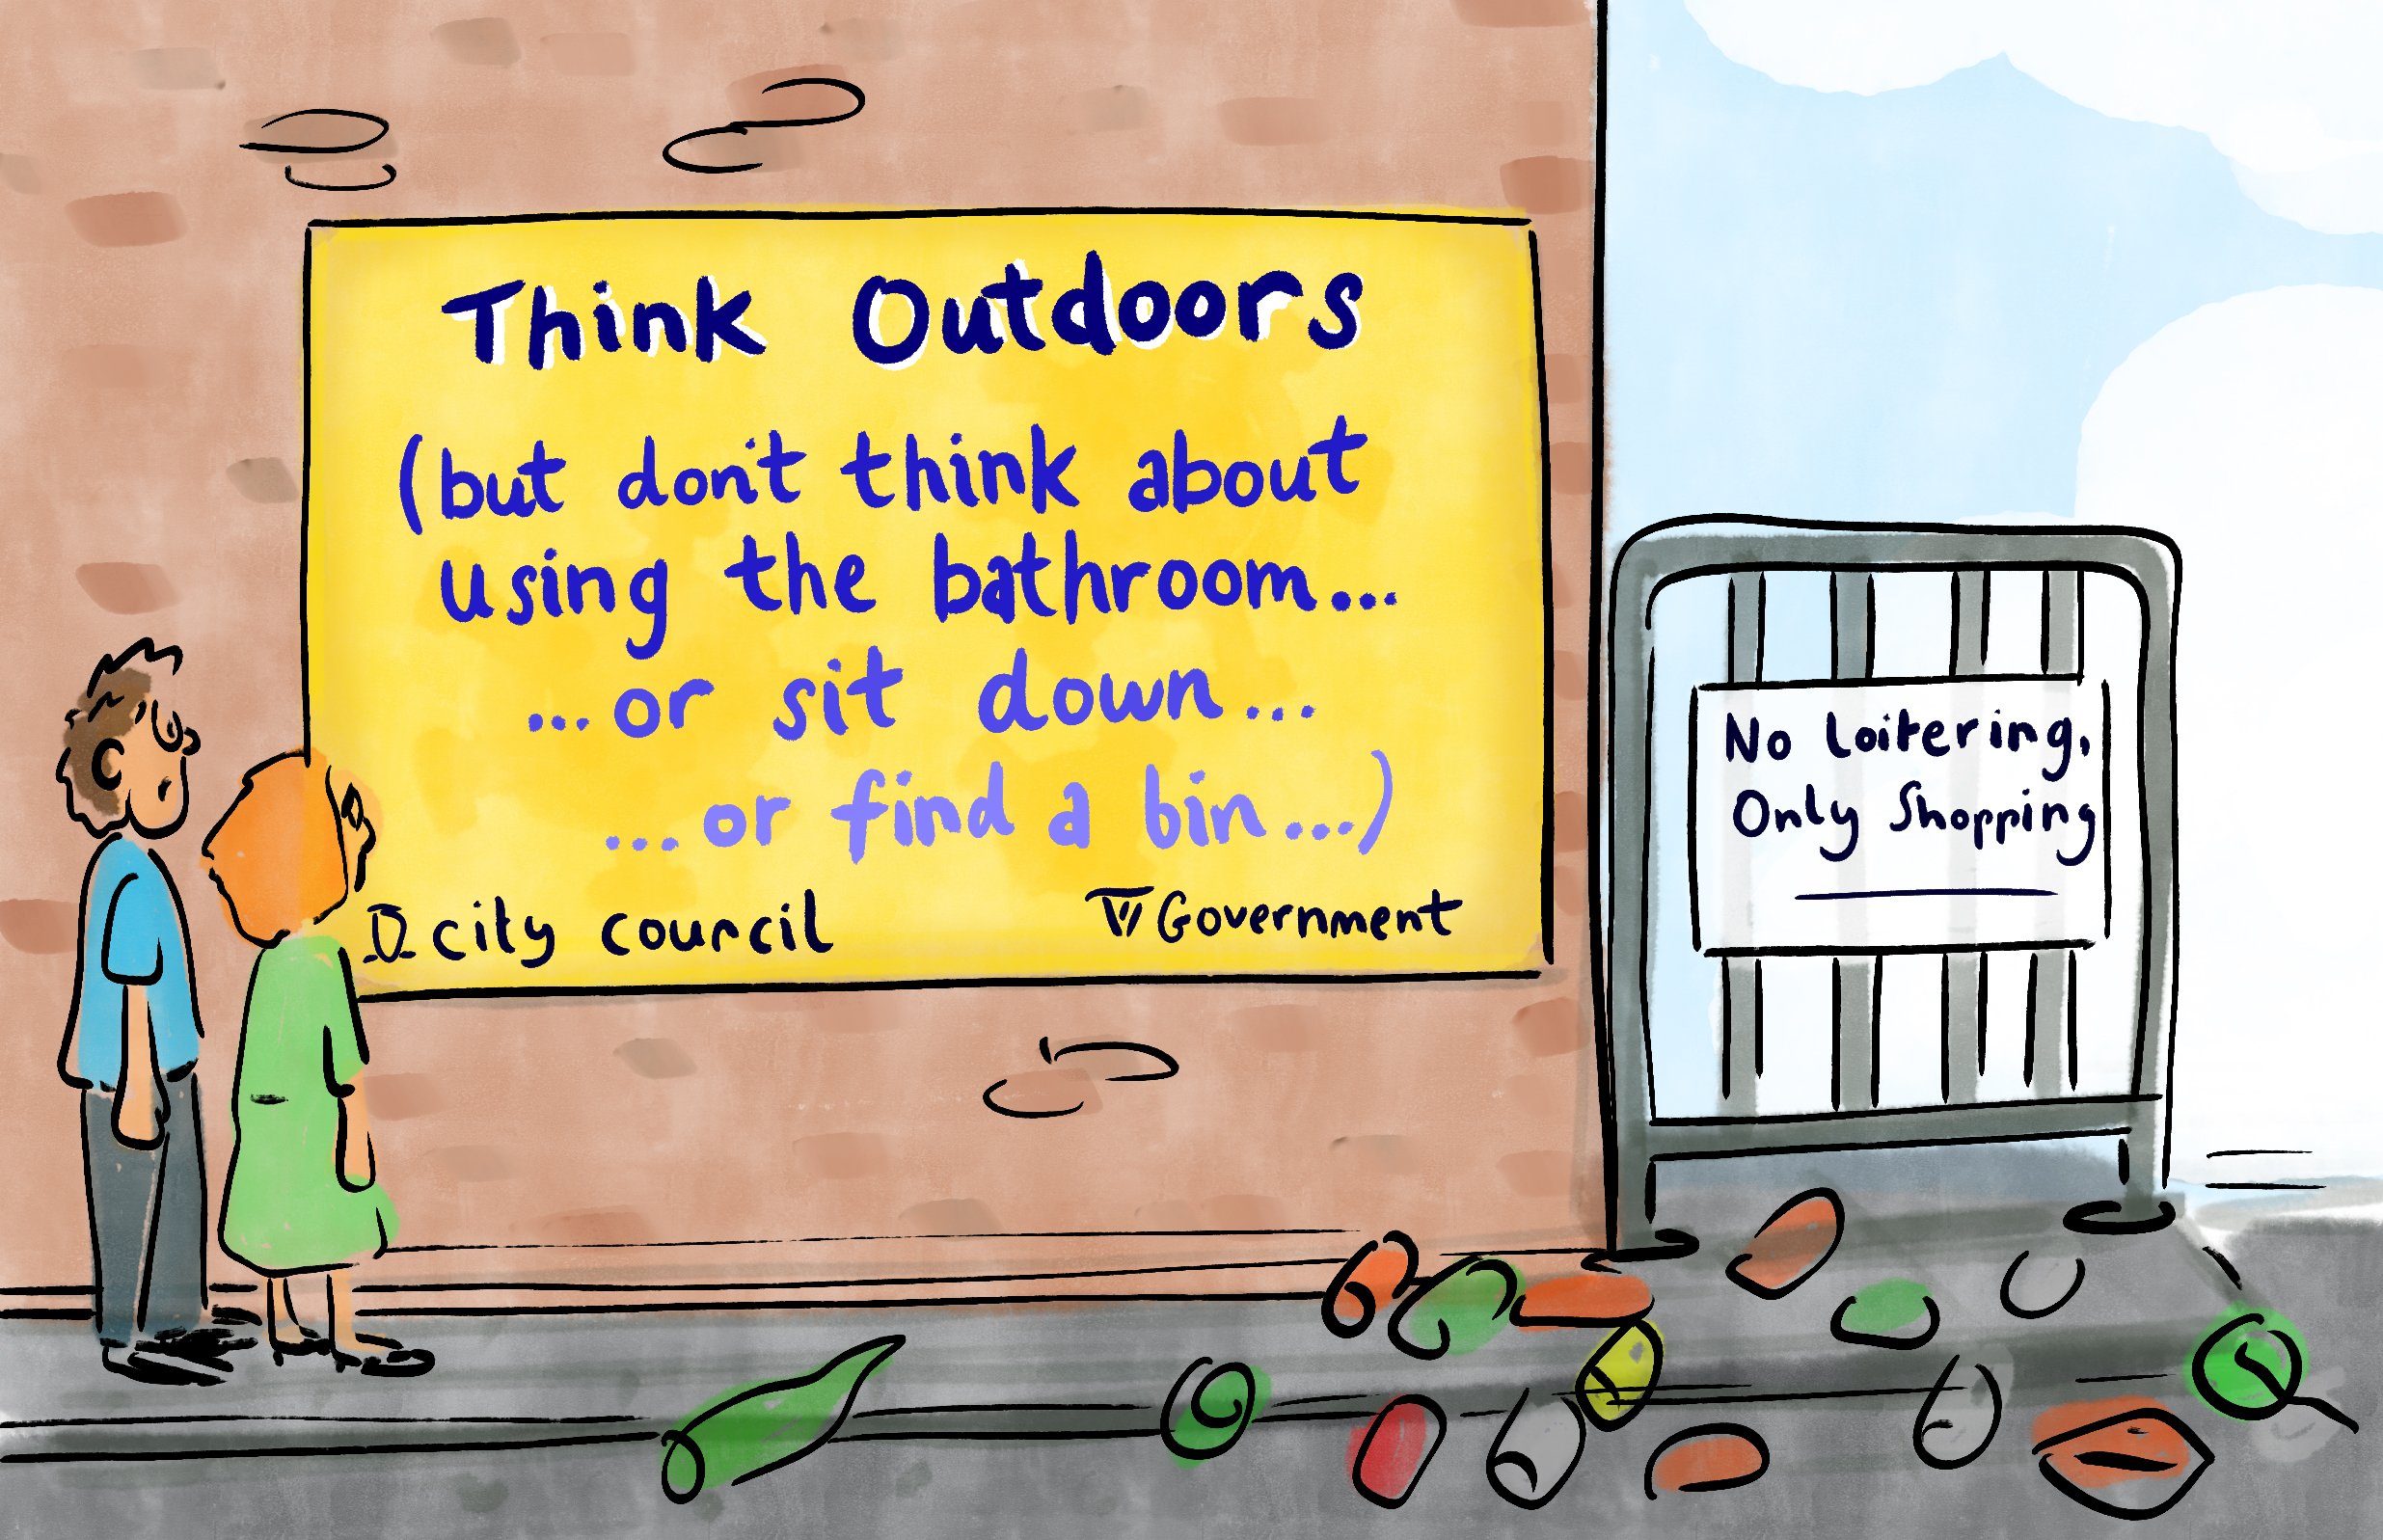 Think Outdoors
(but don't think about
using the bathroom...
...or sit down...
...or find a bin...)
city council
Government
No loitering,
Only Shopping